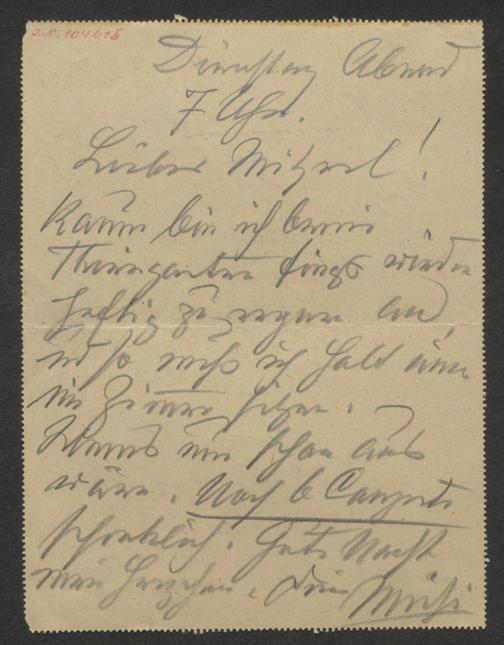 J.N. 104.615
Dienstag Abend
7 Uhr.
Lieber Mitzerl!
Kaum bin ich beim
Thiergarten fings wieder
heftig zu regnen an,
und so muß ich halt
im Zimmer sitzen.
Wenns nur schon aus
wäre. Noch 6 Concerte
schrecklich. Gute Nacht
mein Herzchen. Dein